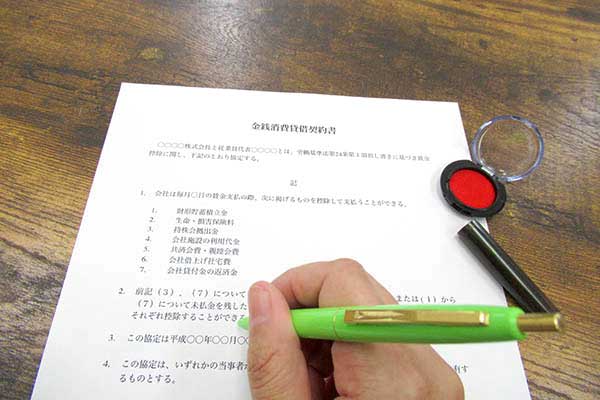 金銭消費貸借契約書
〇〇〇〇株式会社と従業員代表〇〇〇〇とは、労働基準法第24条第1項但し書きに基づき賃金
控除に関し、下記のとおり協定する。
記
1. 会社は毎月〇日の賃金支払の際、次に掲げるものを控除して支払うことができる。
1. 財形貯蓄積立金
2. 生命・損害保険料
3. 持株会拠出金
4. 会社施設の利用代金
5. 共済会費・親睦会費
6. 会社借上げ社宅費
7. 会社貸付金の返済金
2. 前記(3)、(7)について または(1)から
(7)について未払金を残した
それぞれ控除することができ
3. この協定は平成〇〇年〇〇月〇
4. この協定は、いずれかの当事者 有す
るものとする。